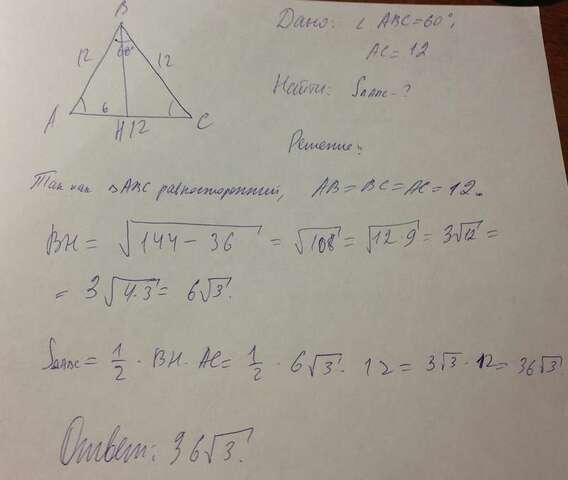 B
Дано: ∠ ABC=60°,
AC= 12
12 60° 12
Найти: S△ABC-?
A 6 H 12 C
Решение:
Так как △ABC равносторонний, AB=BC=AC=12.
BH= √144-36 = √108 = √12·9 = 3√12 =
= 3√4·3 = 6√3.
S△ABC= 1/2 · BH· AC= 1/2 · 6√3· 12 = 3√3·12= 36√3.
Ответ: 36√3.